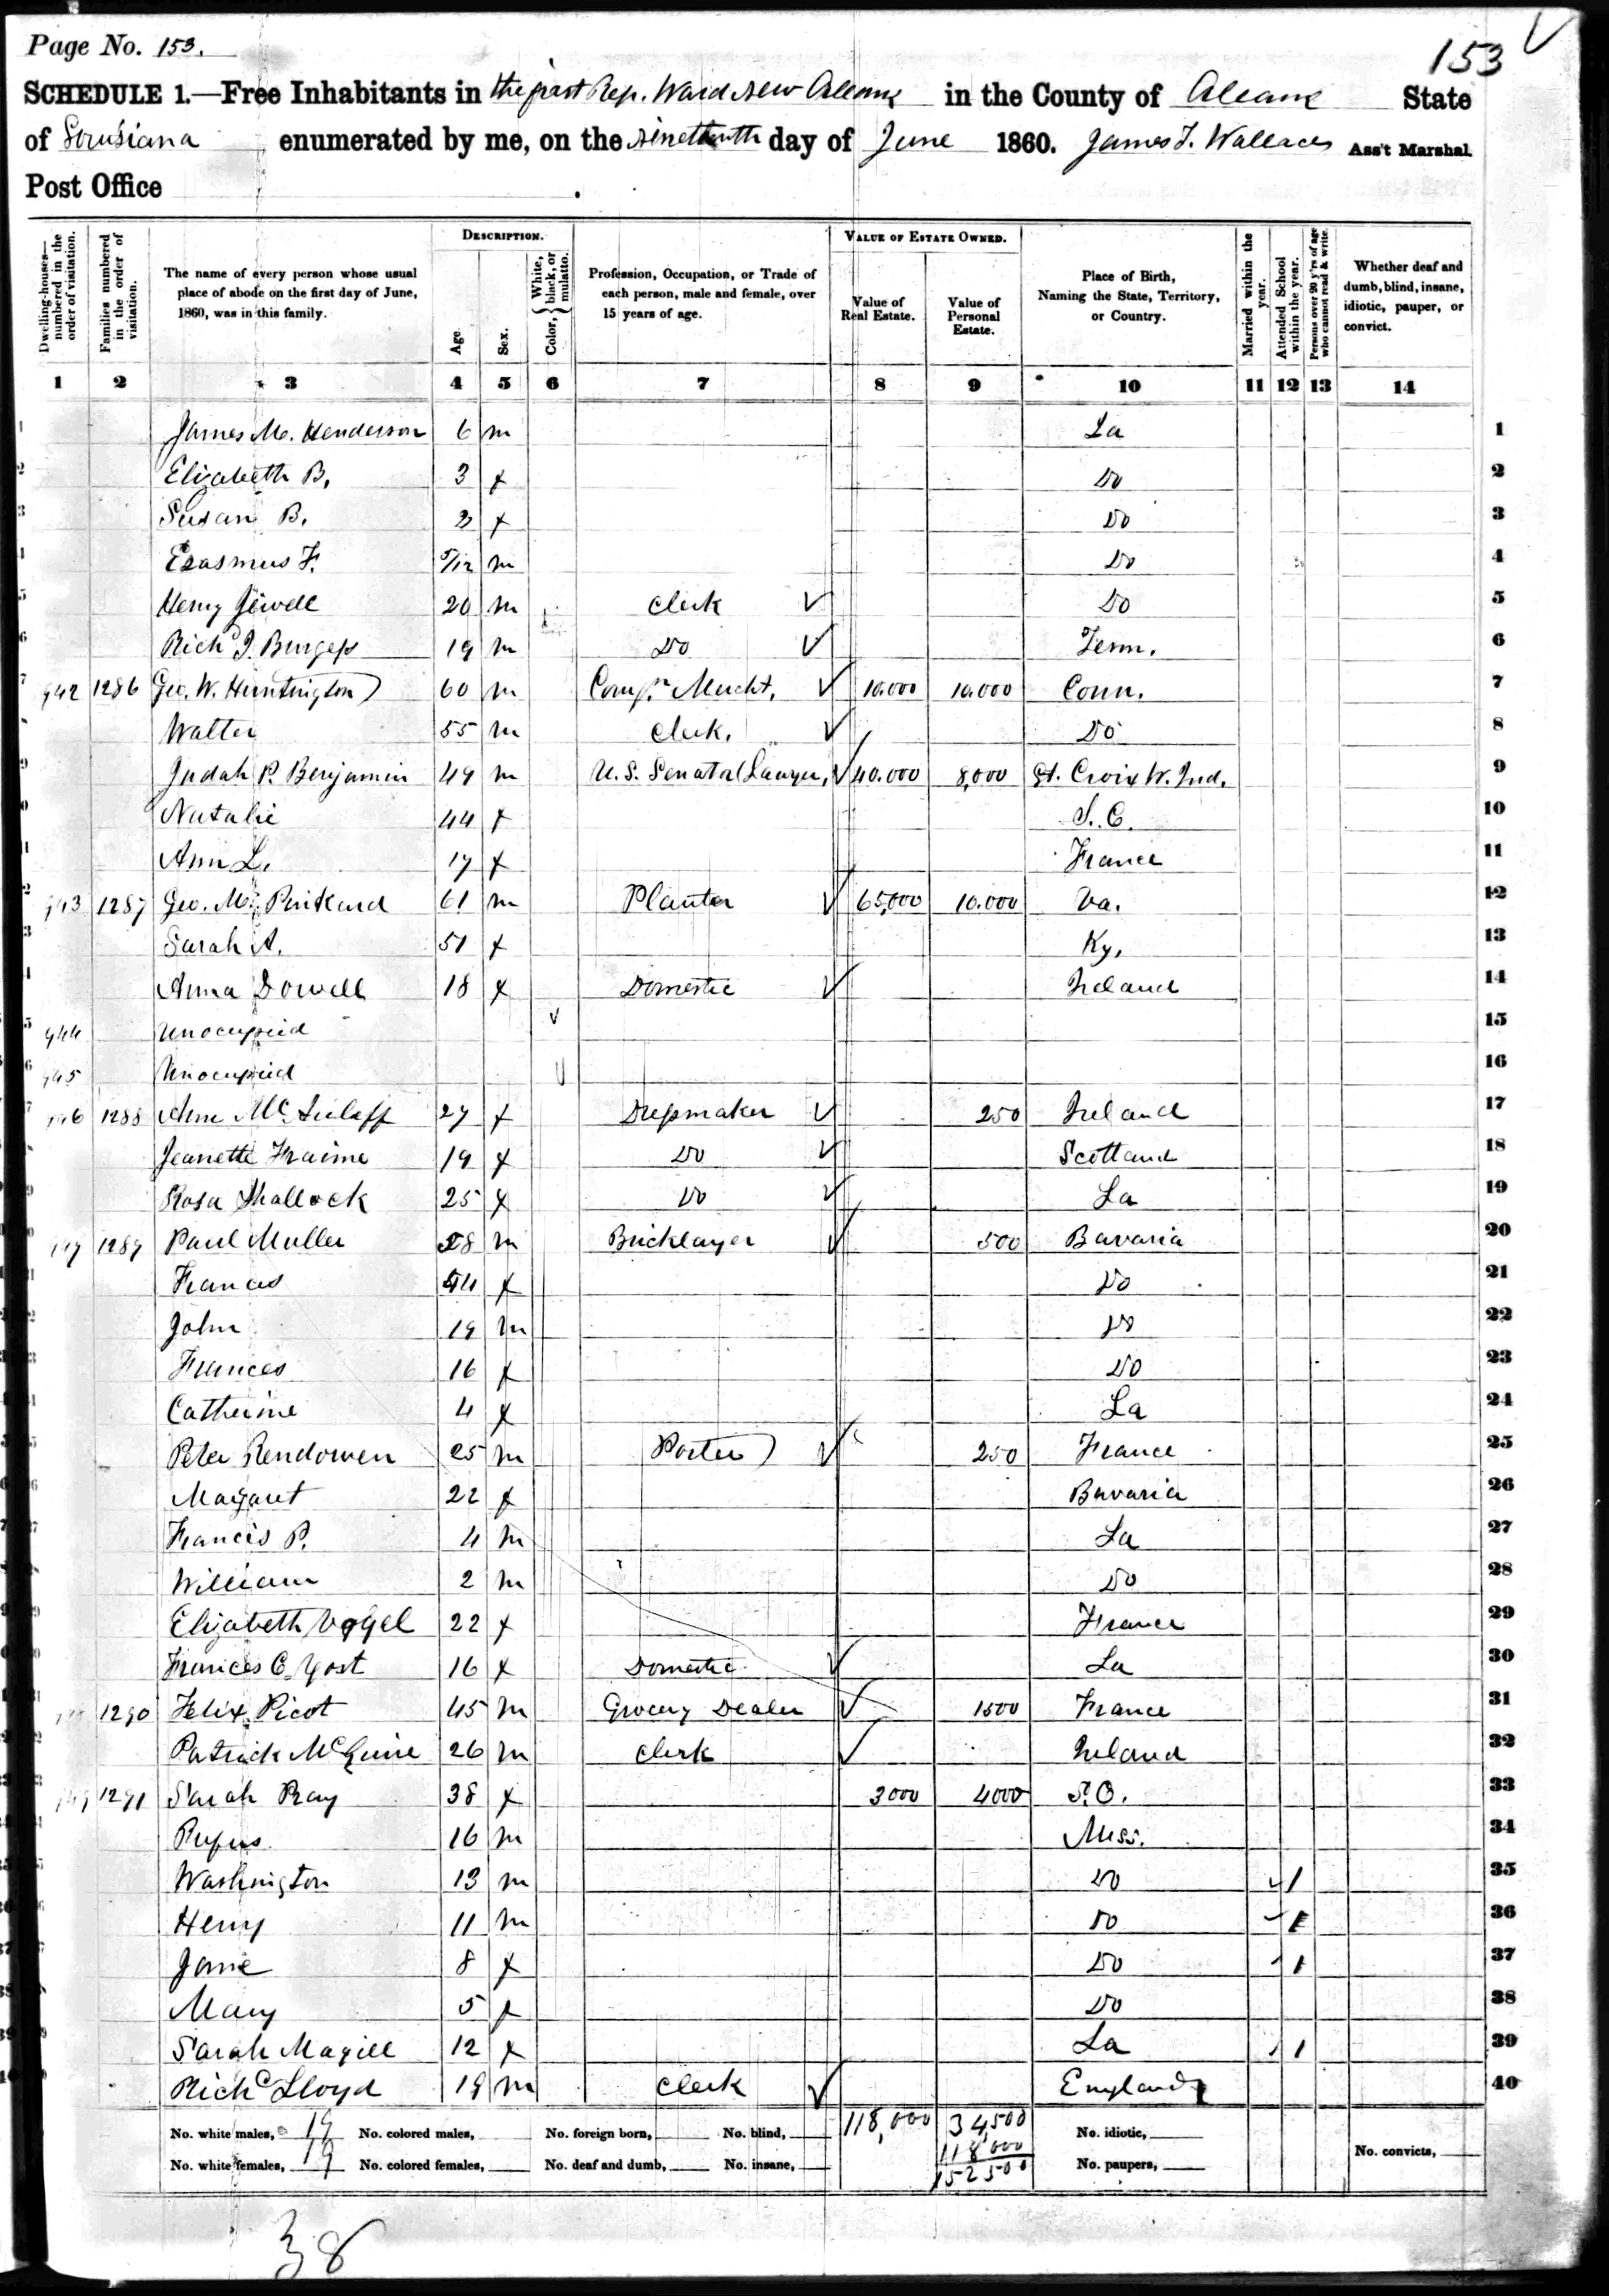 Page No. 153.
153
SCHEDULE 1.—Free Inhabitants in the first Rep. Ward New Orleans in the County of Orleans State
of Louisiana enumerated by me, on the nineteenth day of June 1860. James T. Wallace Ass't Marshal.
Post Office .
Dwelling-houses—numbered in the order of visitation.
Families numbered in the order of visitation.
The name of every person whose usual place of abode on the first day of June, 1860, was in this family.
DESCRIPTION.
Age.
Sex.
Color, { White, black, or mulatto. }
Profession, Occupation, or Trade of each person, male and female, over 15 years of age.
VALUE OF ESTATE OWNED.
Value of Real Estate.
Value of Personal Estate.
Place of Birth, Naming the State, Territory, or Country.
Married within the year.
Attended School within the year.
Persons over 20 y'rs of age who cannot read & write.
Whether deaf and dumb, blind, insane, idiotic, pauper, or convict.
1 2 3 4 5 6 7 8 9 10 11 12 13 14
James M. Henderson 6 m La 1
Elizabeth B. 3 f Do 2
Susan B. 2 f Do 3
Erasmus F. 5/12 m Do 4
Henry Jewell 20 m Clerk Do 5
Richd J. Burgess 19 m Do Tenn. 6
942 1286 Geo. W. Huntington 60 m Mercht. 10.000 10.000 Conn. 7
Walter 55 m Clerk. Do 8
Judah P. Benjamin 49 m U.S. Senator Lawyer, 40.000 8,000 St. Croix W. Ind. 9
Natalie 44 f S. C. 10
Ann L. 17 f France 11
943 1287 Geo. M. Pinkard 61 m Planter 65,000 10.000 Va. 12
Sarah A. 51 f Ky. 13
Anna Dowell 18 f Domestic Ireland 14
944 Unocupied 15
945 Unocupied 16
946 1288 Ann 27 f Dressmaker 250 Ireland 17
Jeanette Fraime 19 f Do Scotland 18
Rosa Shallock 25 f Do La 19
947 1289 Paul Muller 58 m Bricklayer 500 Bavaria 20
Frances 44 f Do 21
John 19 m Do 22
Frances 16 f Do 23
Catherine 4 f La 24
Peter Rendowen 25 m Porter 250 France 25
Margaret 22 f Bavaria 26
Francis P. 4 m La 27
William 2 m Do 28
Elizabeth Vogel 22 f France 29
Frances C. Yost 16 f Domestic La 30
1290 Felix Picot 45 m Grocery Dealer 1500 France 31
Patrick McGuire 26 m Clerk Ireland 32
949 1291 Sarah Ray 38 f 3000 4000 S.C. 33
Rufus 16 m Miss. 34
Washington 13 m Do 1 35
Henry 11 m Do 1 36
Jane 8 f Do 1 37
Mary 5 f Do 38
Sarah Magill 12 f La 1 39
Richd Lloyd 19 m Clerk England 40
No. white males, 19 No. colored males, No. foreign born, No. blind, 118,000 34,500 No. idiotic,
118000
No. white females, 19 No. colored females, No. deaf and dumb, No. insane, 152500 No. paupers, No. convicts,
38